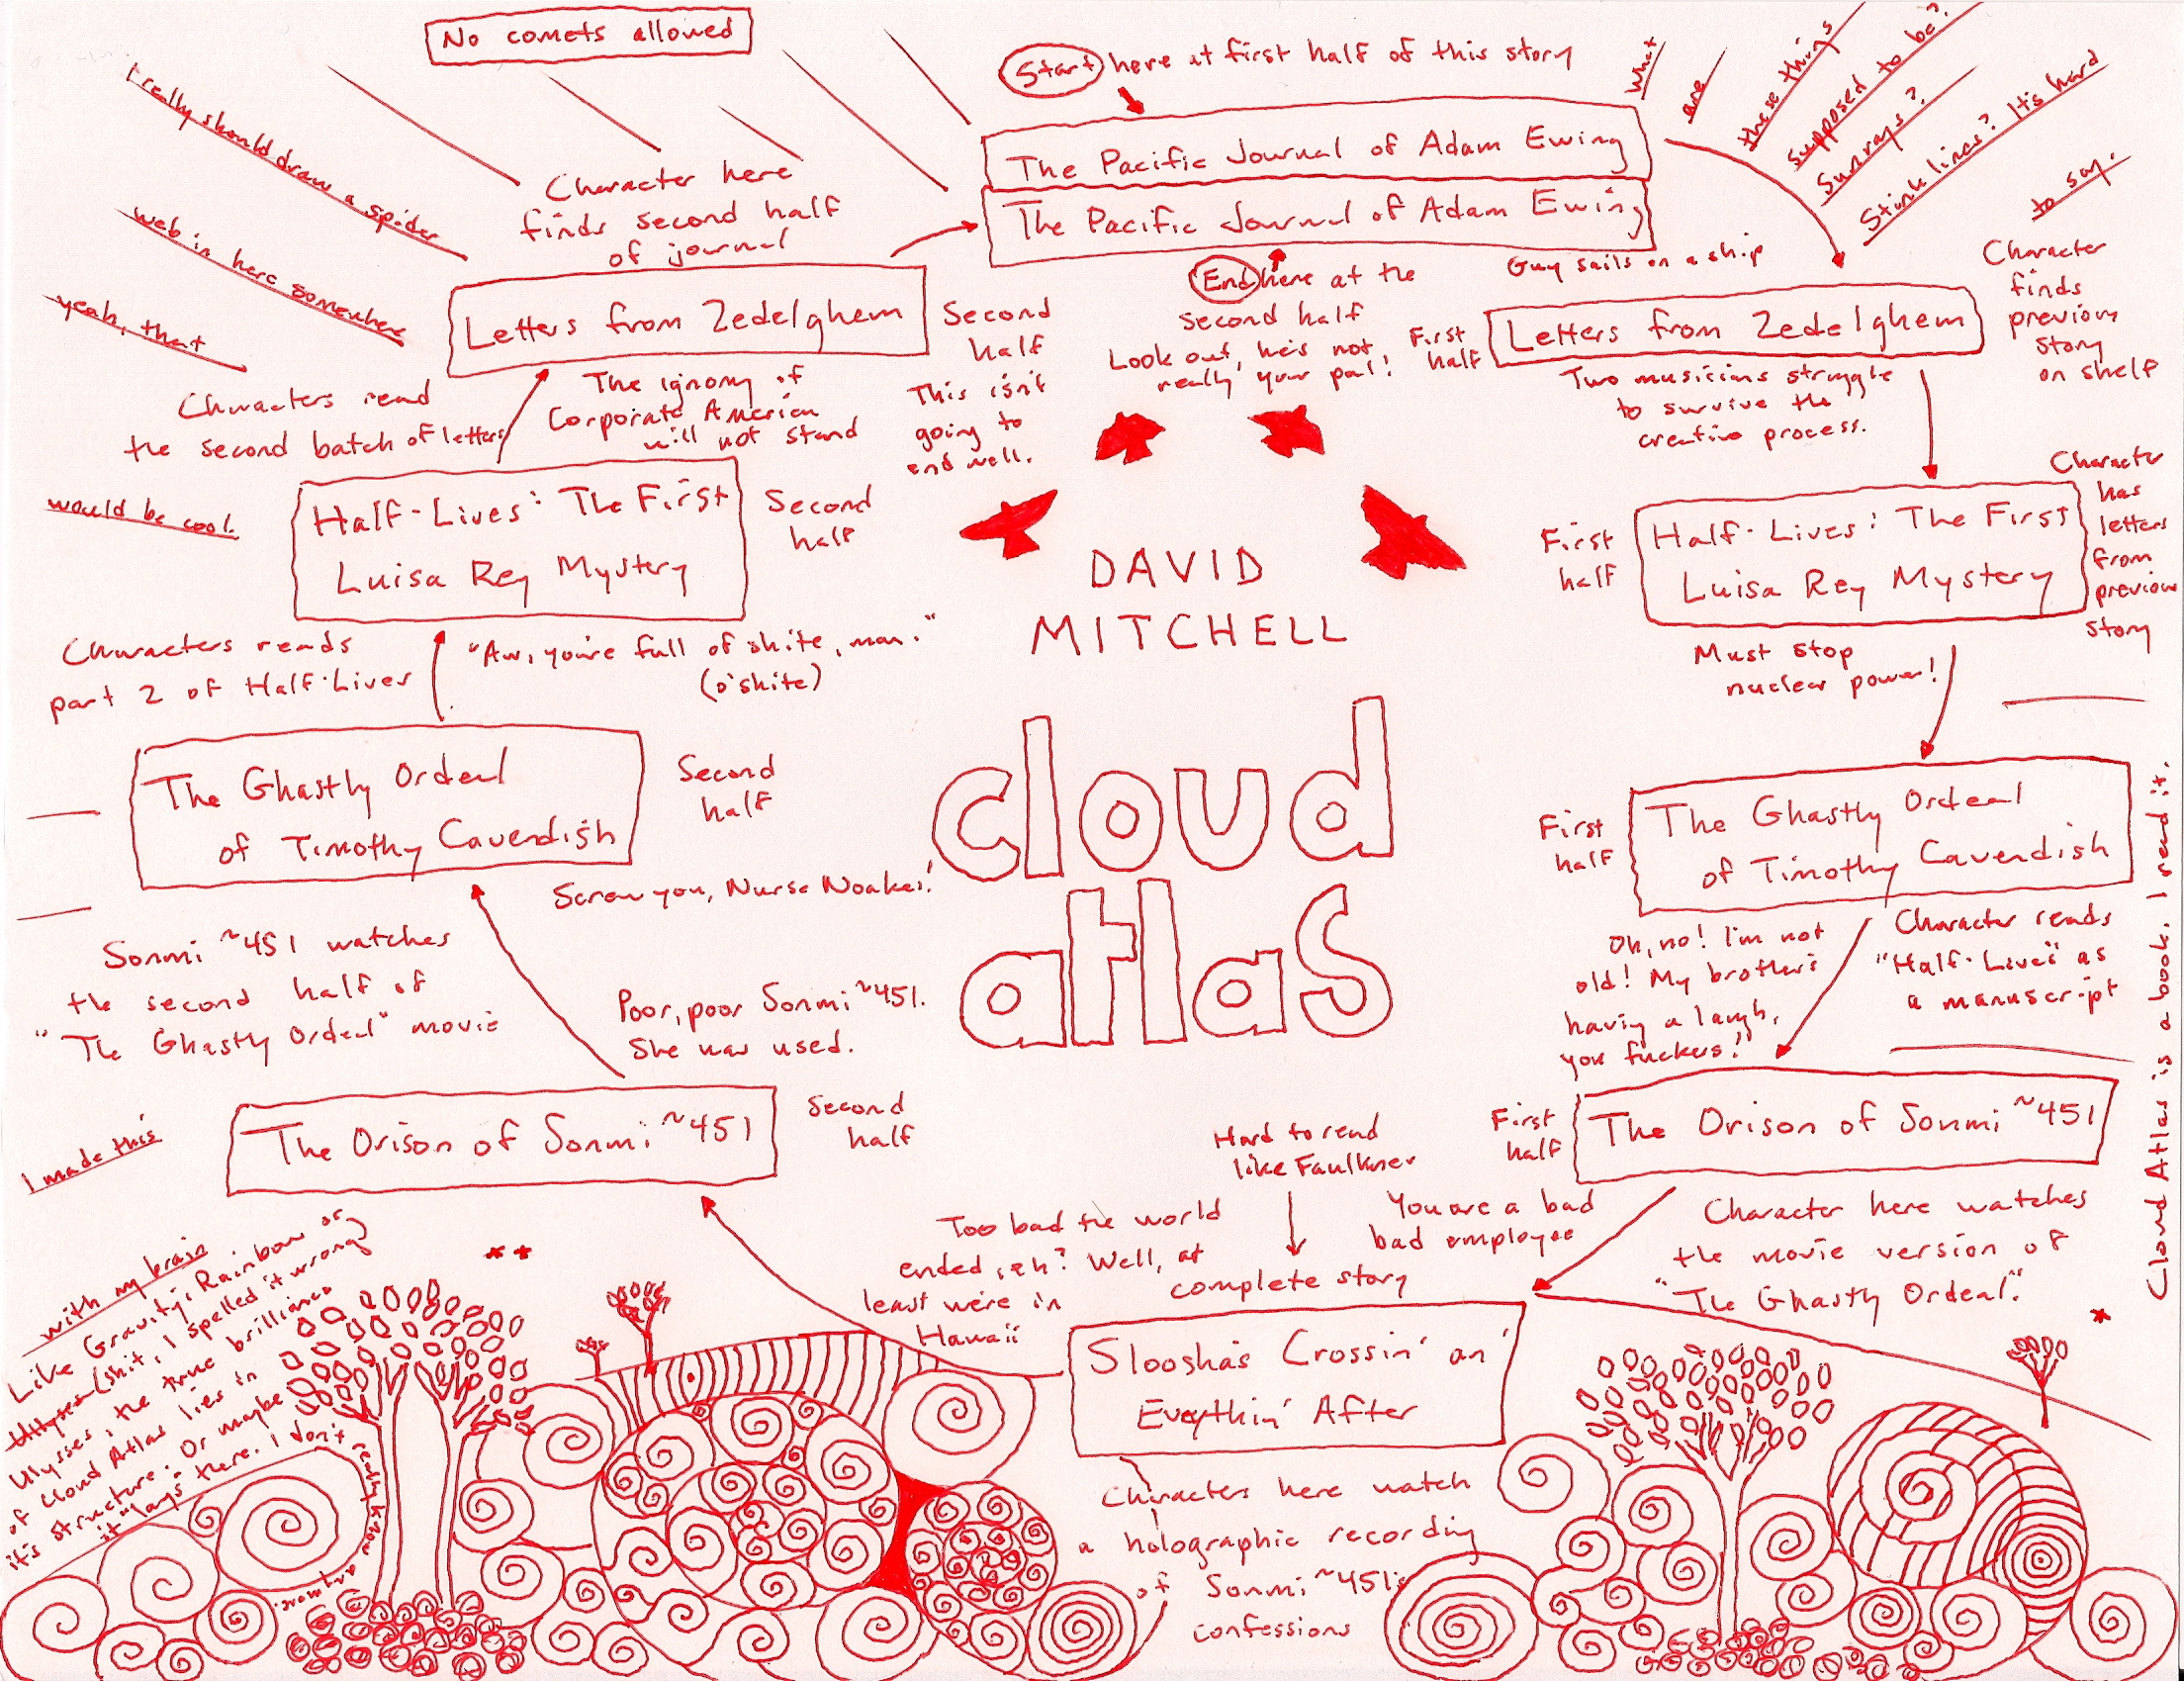 No comets allowed
Start here at first half of this story
The Pacific Journal of Adam Ewing
The Pacific Journal of Adam Ewing
End here at the
second half
Look out, he's not
really your pal!
Guy sails on a ship
What
are
these things
supposed to be?
Sunrays?
Stink lines? It's hard
to say.
First
half
Letters from Zedelghem
Character
finds
previous
story
on shelf
Two musicians struggle
to survive the
creative process.
First
half
Half-Lives: The First
Luisa Rey Mystery
Character
has
letters
from
previous
story
Must stop
nuclear power!
First
half
The Ghastly Ordeal
of Timothy Cavendish
Oh, no! I'm not
old! My brother's
having a laugh,
you fuckers!"
Character reads
"Half-Lives" as
a manuscript
First
half
The Orison of Sonmi ~451
You are a bad
bad employee
Character here watches
the movie version of
"The Ghastly Ordeal".
*
Hard to read
like Faulkner
complete story
Sloosha's Crossin' an'
Evrythin' After
Too bad the world
ended, eh? Well, at
least we're in
Hawaii
Characters here watch
a holographic recording
of Sonmi ~451's
confessions
The Orison of Sonmi ~451
Second
half
Poor, poor Sonmi ~451.
She was used.
Sonmi ~451 watches
the second half of
"The Ghastly Ordeal" movie
The Ghastly Ordeal
of Timothy Cavendish
Second
half
Screw you, Nurse Noakes!
Characters reads
part 2 of Half-Lives
"Aw, you're full of shite, man."
(o'shite)
Half-Lives: The First
Luisa Rey Mystery
Second
half
Characters read
the second batch of letters
The ignomy of
Corporate America
will not stand
Letters from Zedelghem
Second
half
This isn't
going to
end well.
Character here
finds second half
of journal
I really should draw a spider
web in here somewhere
yeah, that
would be cool.
DAVID
MITCHELL
cloud
atlas
I made this
with my brain
**
Like Gravity's Rainbow or
Ullyses (shit, I spelled it wrong)
Ulysses, the true brilliance
of Cloud Atlas lies in
it's structure. Or maybe
it "lays" there. I don't really know anymore.
Cloud Atlas is a book. I read it.